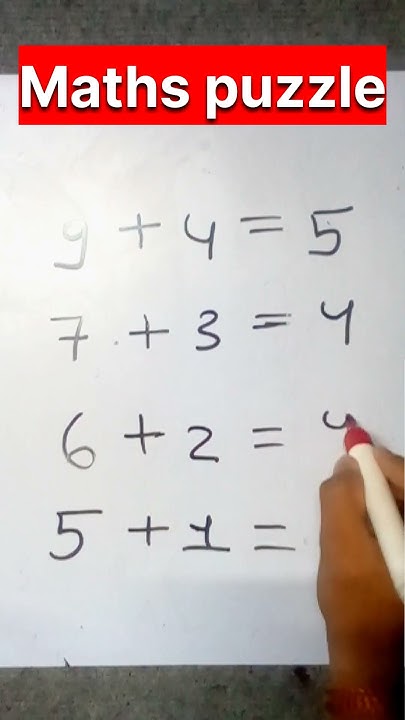 Maths puzzle
9 + 4 = 5
7 + 3 = 4
6 + 2 = 4
5 + 1 =